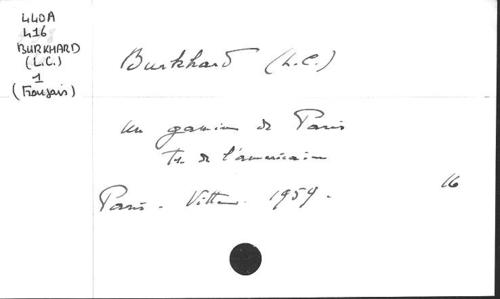 440A
416
BURKHARD
(L.C.)
1
(Français)
Burkhard (L.C.)
un gamin de Paris
Tr. de l'américain
Paris - Vitta. 1959.
16